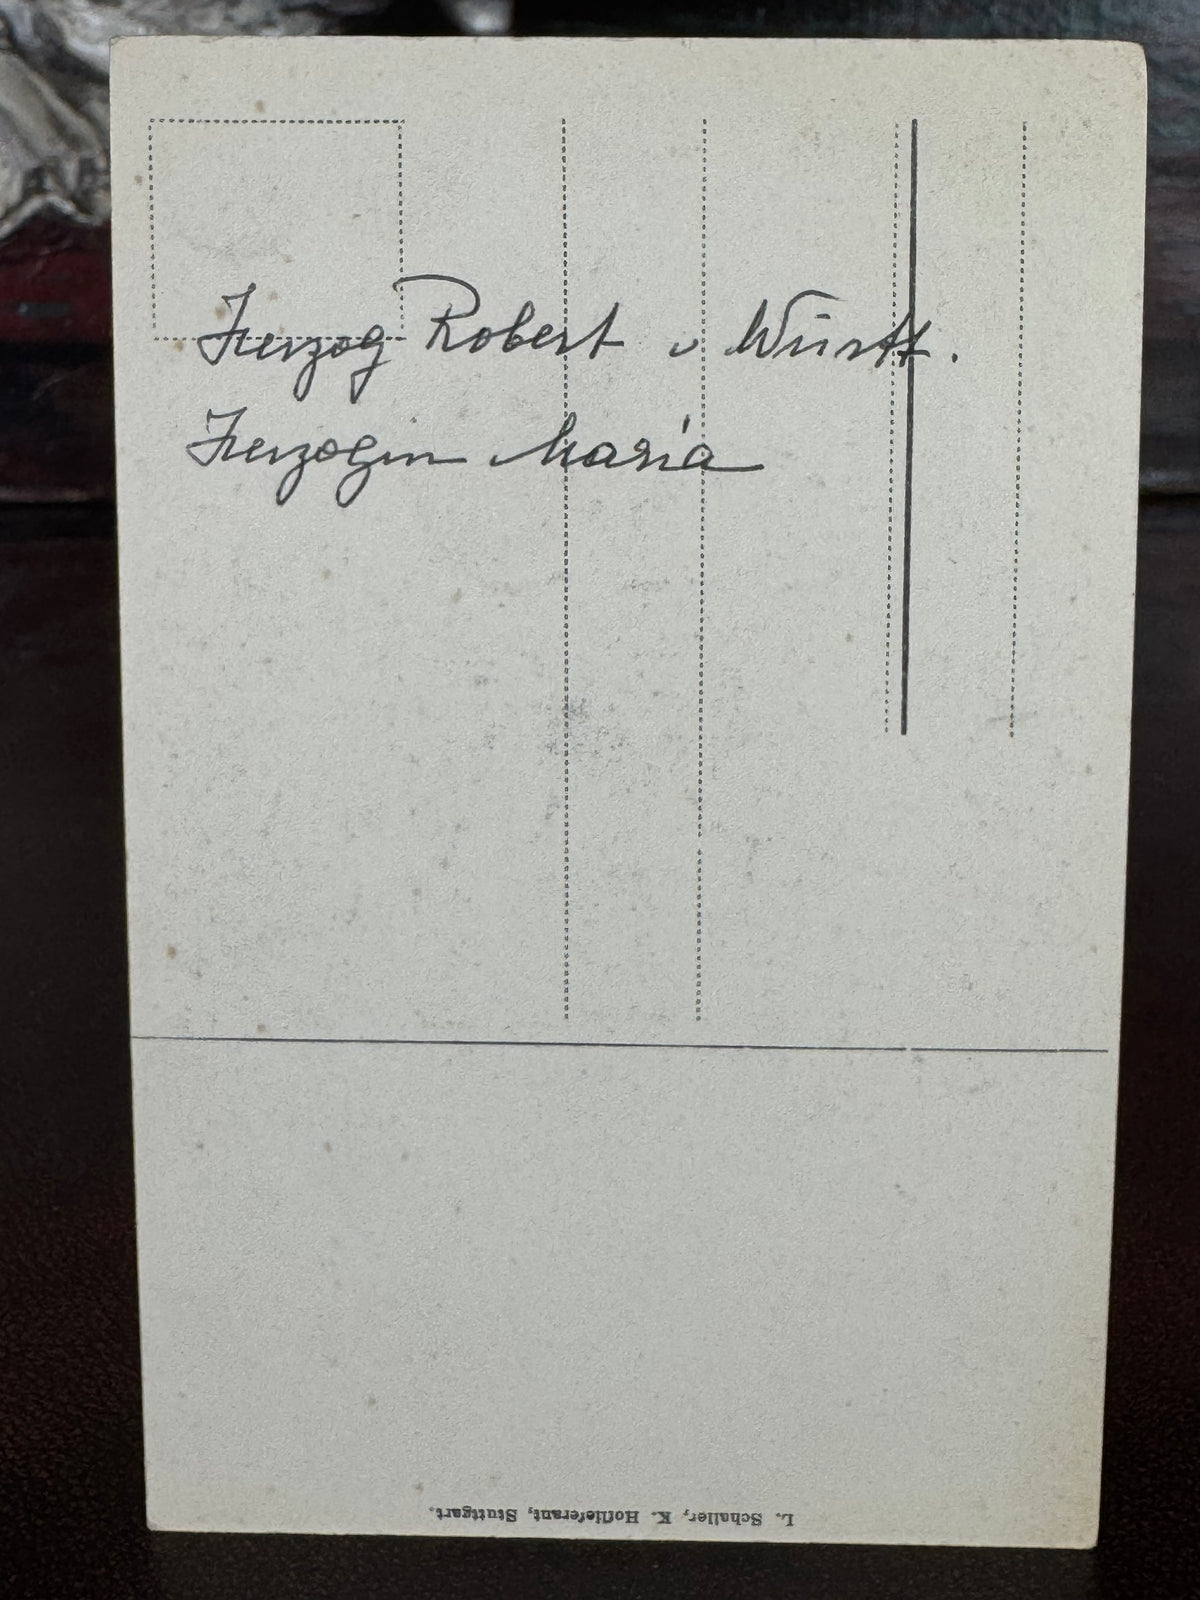 Herzog Robert v Württ.
Herzogin Maria
L. Schaller, K. Hoflieferant, Stuttgart.